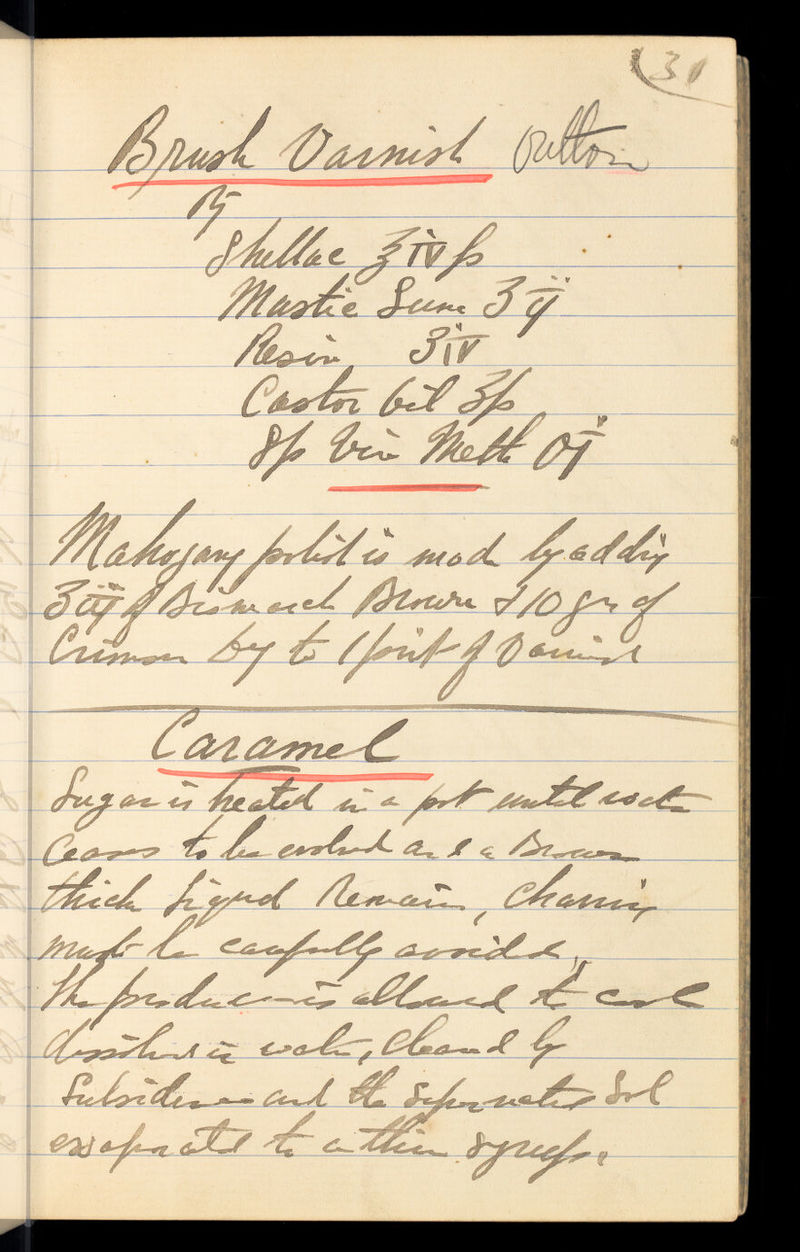 31
Brush Varnish
℞
Shellac ℥ivſs
Mastic Gum ʒij
Resin ʒiv
Castor Oil ʒſs
Sps Vin Meth Oij
Mahogany polish is made by adding
ʒiij of Bismarck Brown & 10 grs of
Crimson by to 1 point of Varnish
Caramel
Sugar is heated in a pot until water
ceases to be evolved and a Brown
thick liquid Remains, Charring
must be carefully avoided,
The produce is allowed to cool
dissolved in water, cleared by
Subsidence and the supernatent Sol
evaporated to a thin syrup.